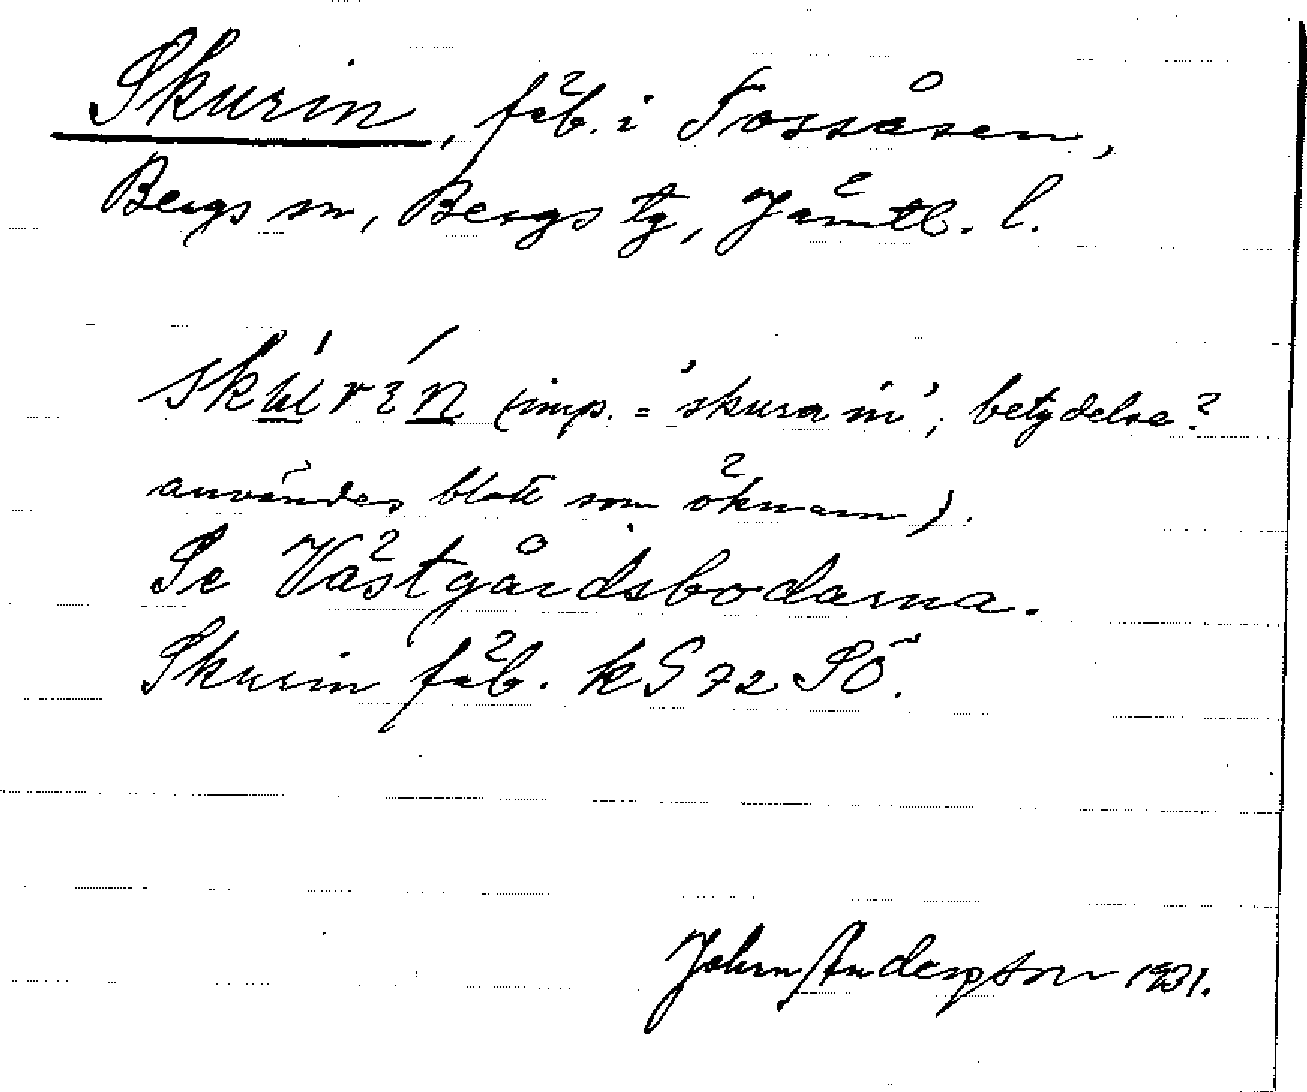 Skurin, fäb. i Tossåsen,
Bergs sn, Bergs tg, Jämtl. l.
(imp. = 'skura in'; betydelse?
användes blott som öknamn).
Se Västgårdsbodarna.
Skurin fäb. kS 72 SÖ.
John Anderson 1931.